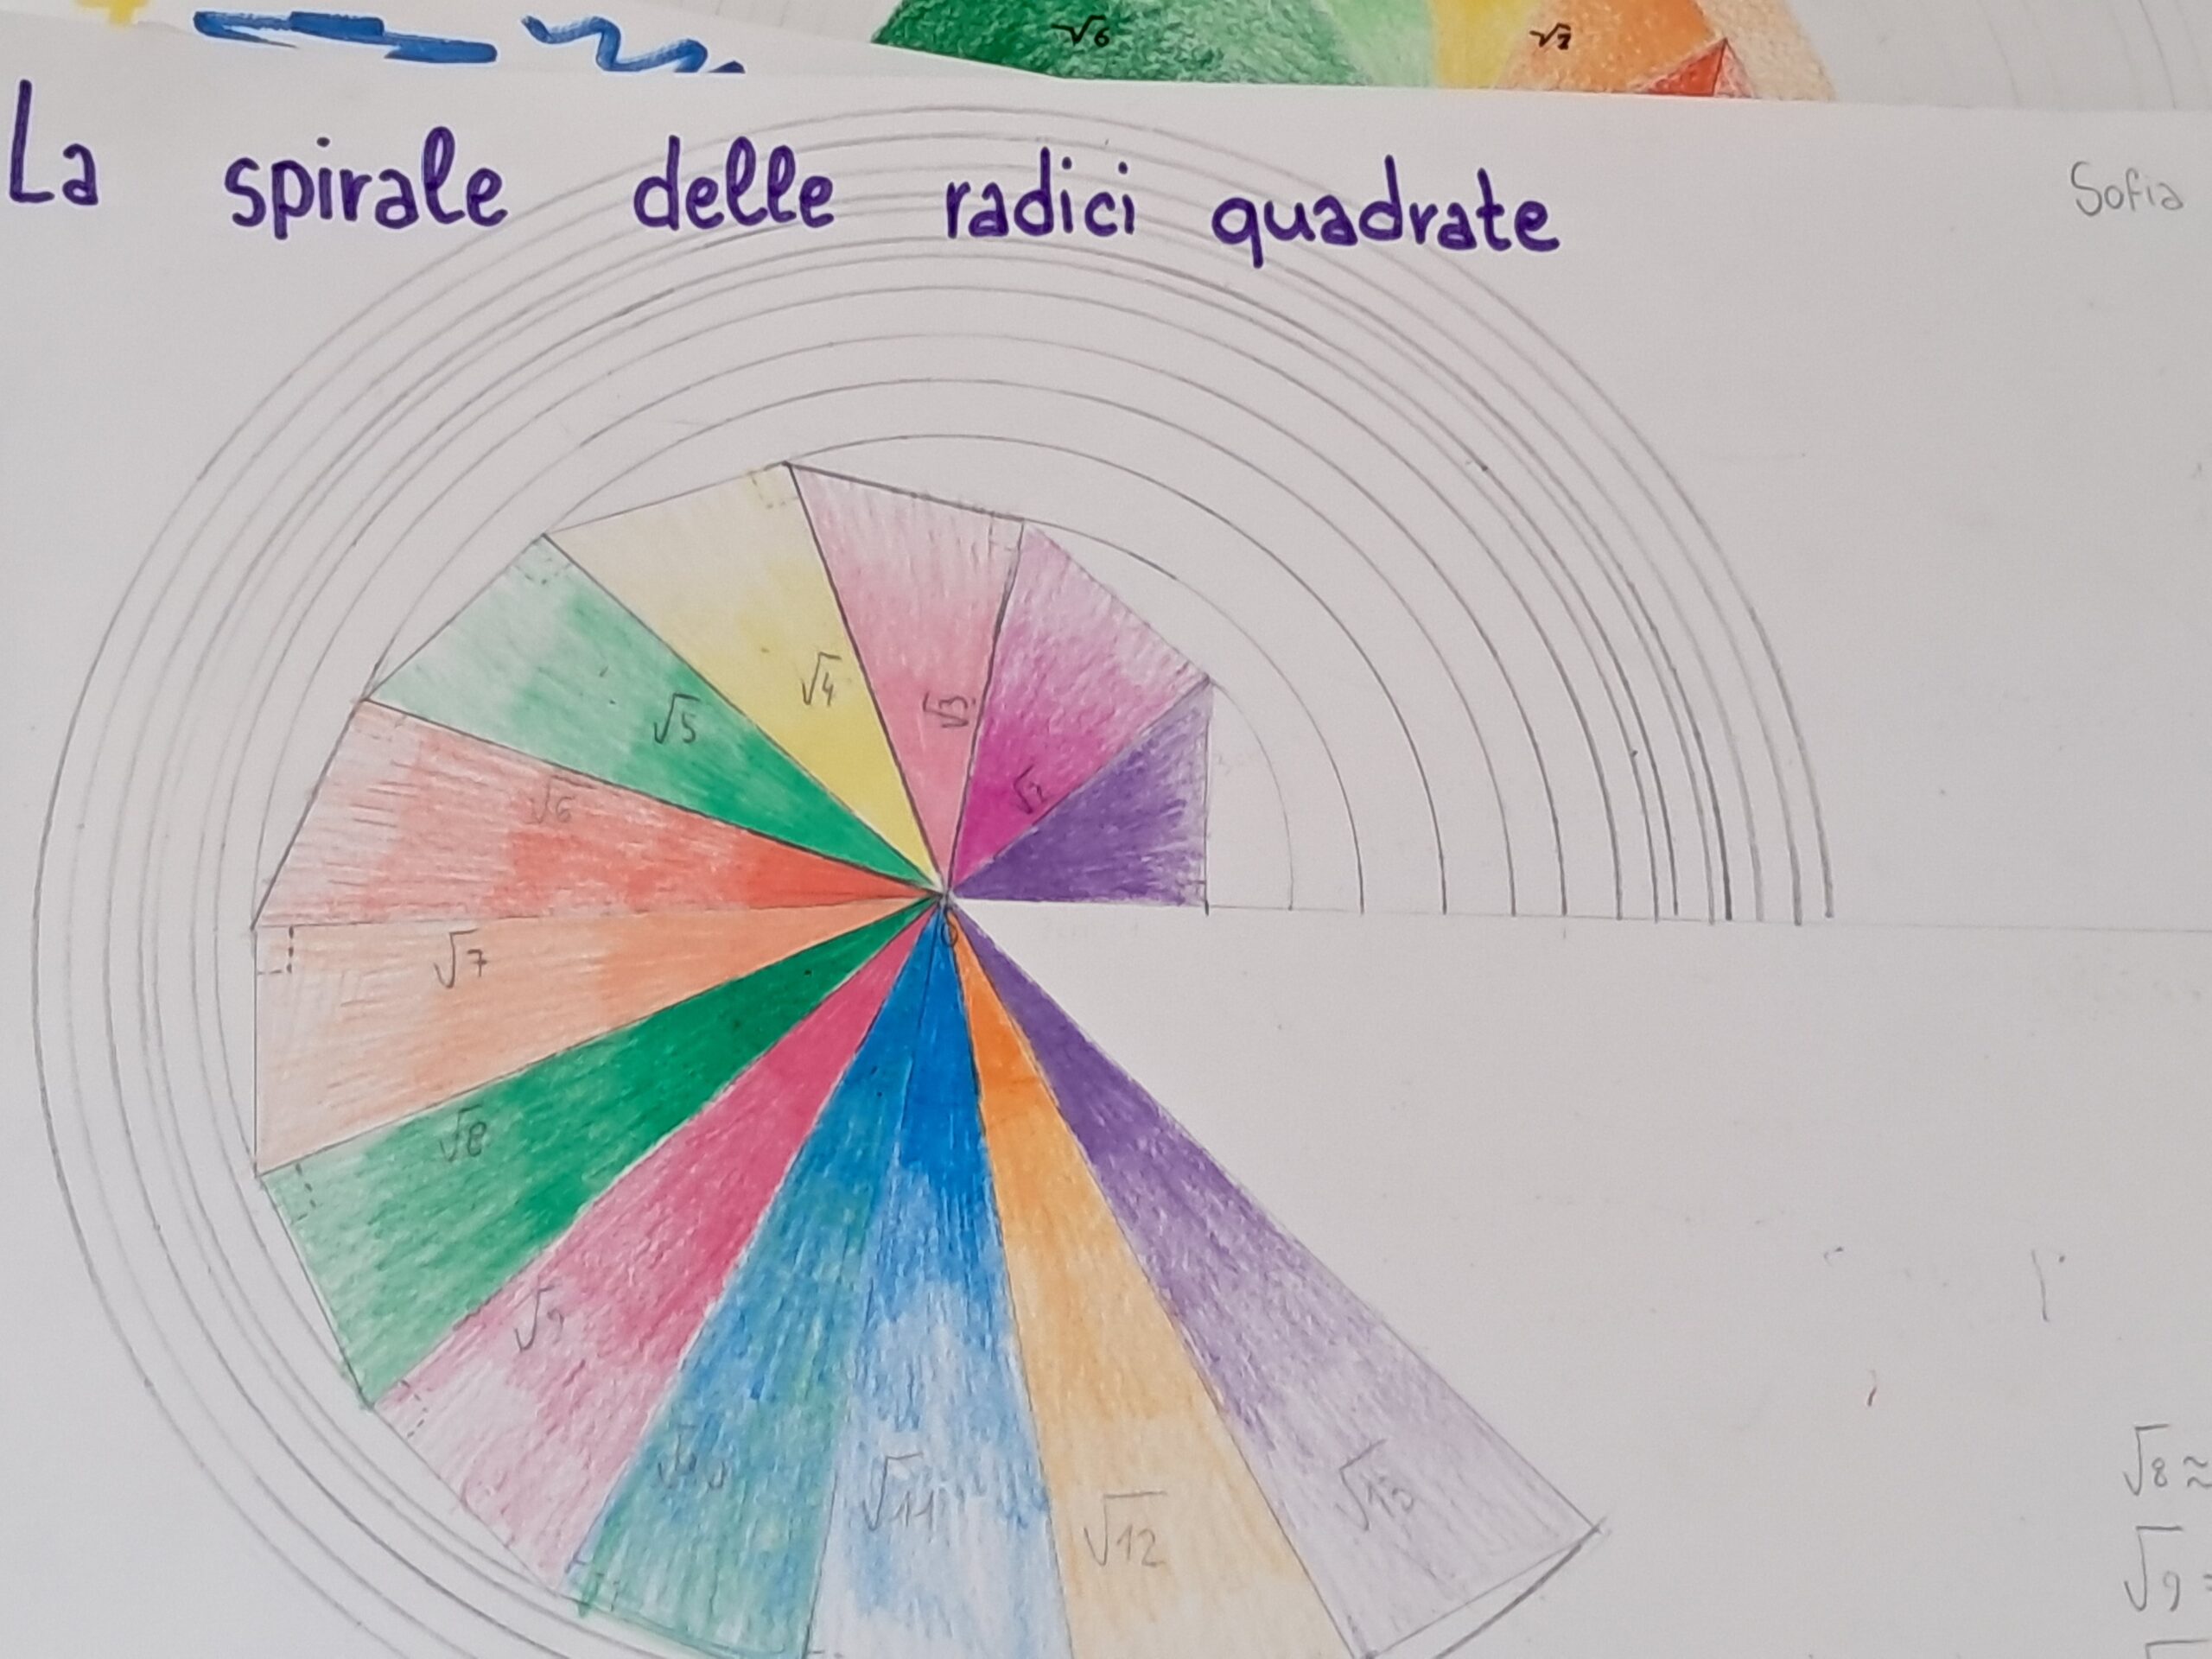 √6 √7
La spirale delle radici quadrate
Sofia
√4
√3
√5
√2
√6
√7
√8
√8 ≈
√9
√9 =
√10
√11
√12
√13